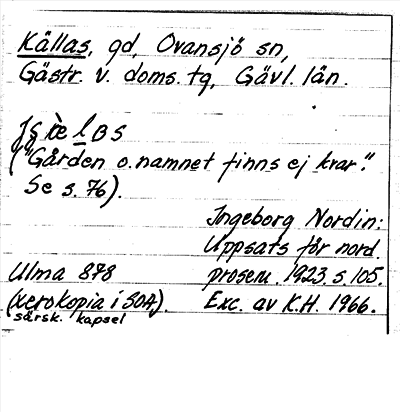 Källas, gd, Ovansjö sn,
Gästr. v. doms. tg, Gävl. län.
("Gården o. namnet finns ej kvar."
Se s. 76).
Ingeborg Nordin:
Uppsats för nord.
Ulma 878 prosem. 1923 s. 105.
(xerokopia i SOA). Exc. av K.H. 1966.
särsk. kapsel